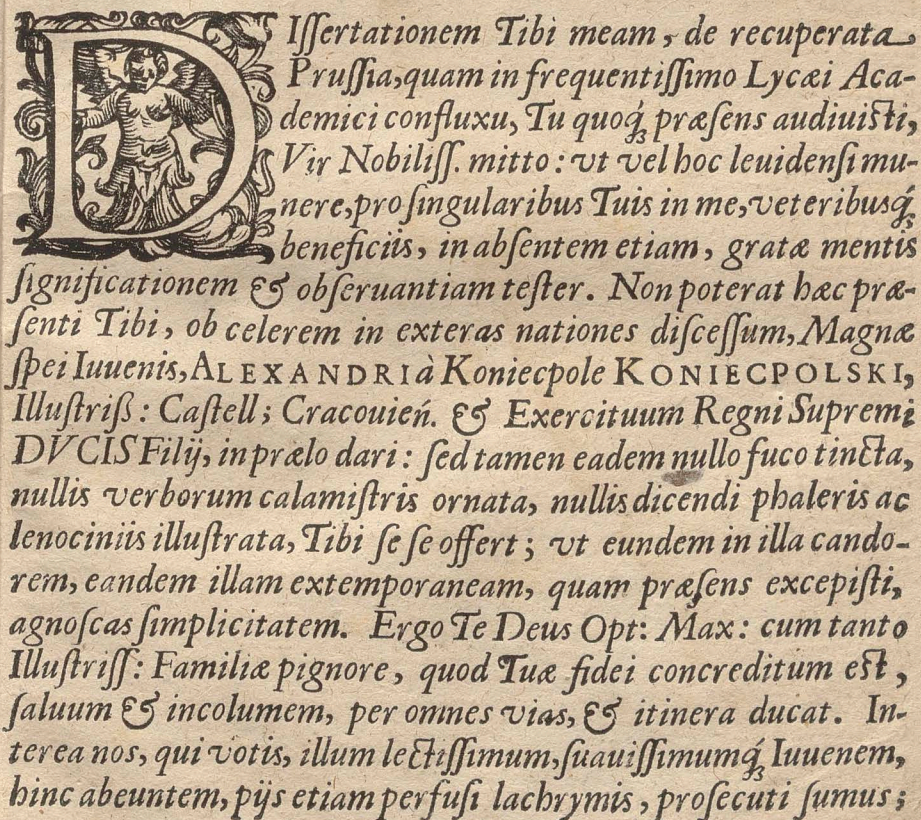 DIſſertationem Tibi meam, de recuperata
Pruſſia, quam in frequentiſſimo Lycæi Aca-
demici confluxu, Tu quoq́; præſens audiuiſti,
Vir Nobiliſſ. mitto: vt vel hoc leuidenſi mu-
nere, pro ſingularibus Tuis in me, veteribusq́;
beneficiis, in abſentem etiam, gratæ mentis
ſignificationem & obſeruantiam teſter. Non poterat hæc præ-
ſenti Tibi, ob celerem in exteras nationes diſceſſum, Magnæ
ſpei Iuuenis, ALEXANDRI à Koniecpole KONIECPOLSKI,
Illuſtriß: Caſtell; Cracouień. & Exercituum Regni Supremi
DVCIS Filij, in prælo dari: ſed tamen eadem nullo fuco tincta,
nullis verborum calamiſtris ornata, nullis dicendi phaleris ac
lenociniis illuſtrata, Tibi ſe ſe offert; vt eundem in illa cando-
rem, eandem illam extemporaneam, quam præſens excepiſti,
agnoſcas ſimplicitatem. Ergo Te Deus Opt: Max: cum tanto
Illuſtriſſ: Familiæ pignore, quod Tuæ fidei concreditum eſt,
ſaluum & incolumem, per omnes vias, & itinera ducat. In-
terea nos, qui votis, illum lectiſſimum, ſuauiſſimumq́; Iuuenem,
hinc abeuntem, pijs etiam perfuſi lachrymis, proſecuti ſumus;